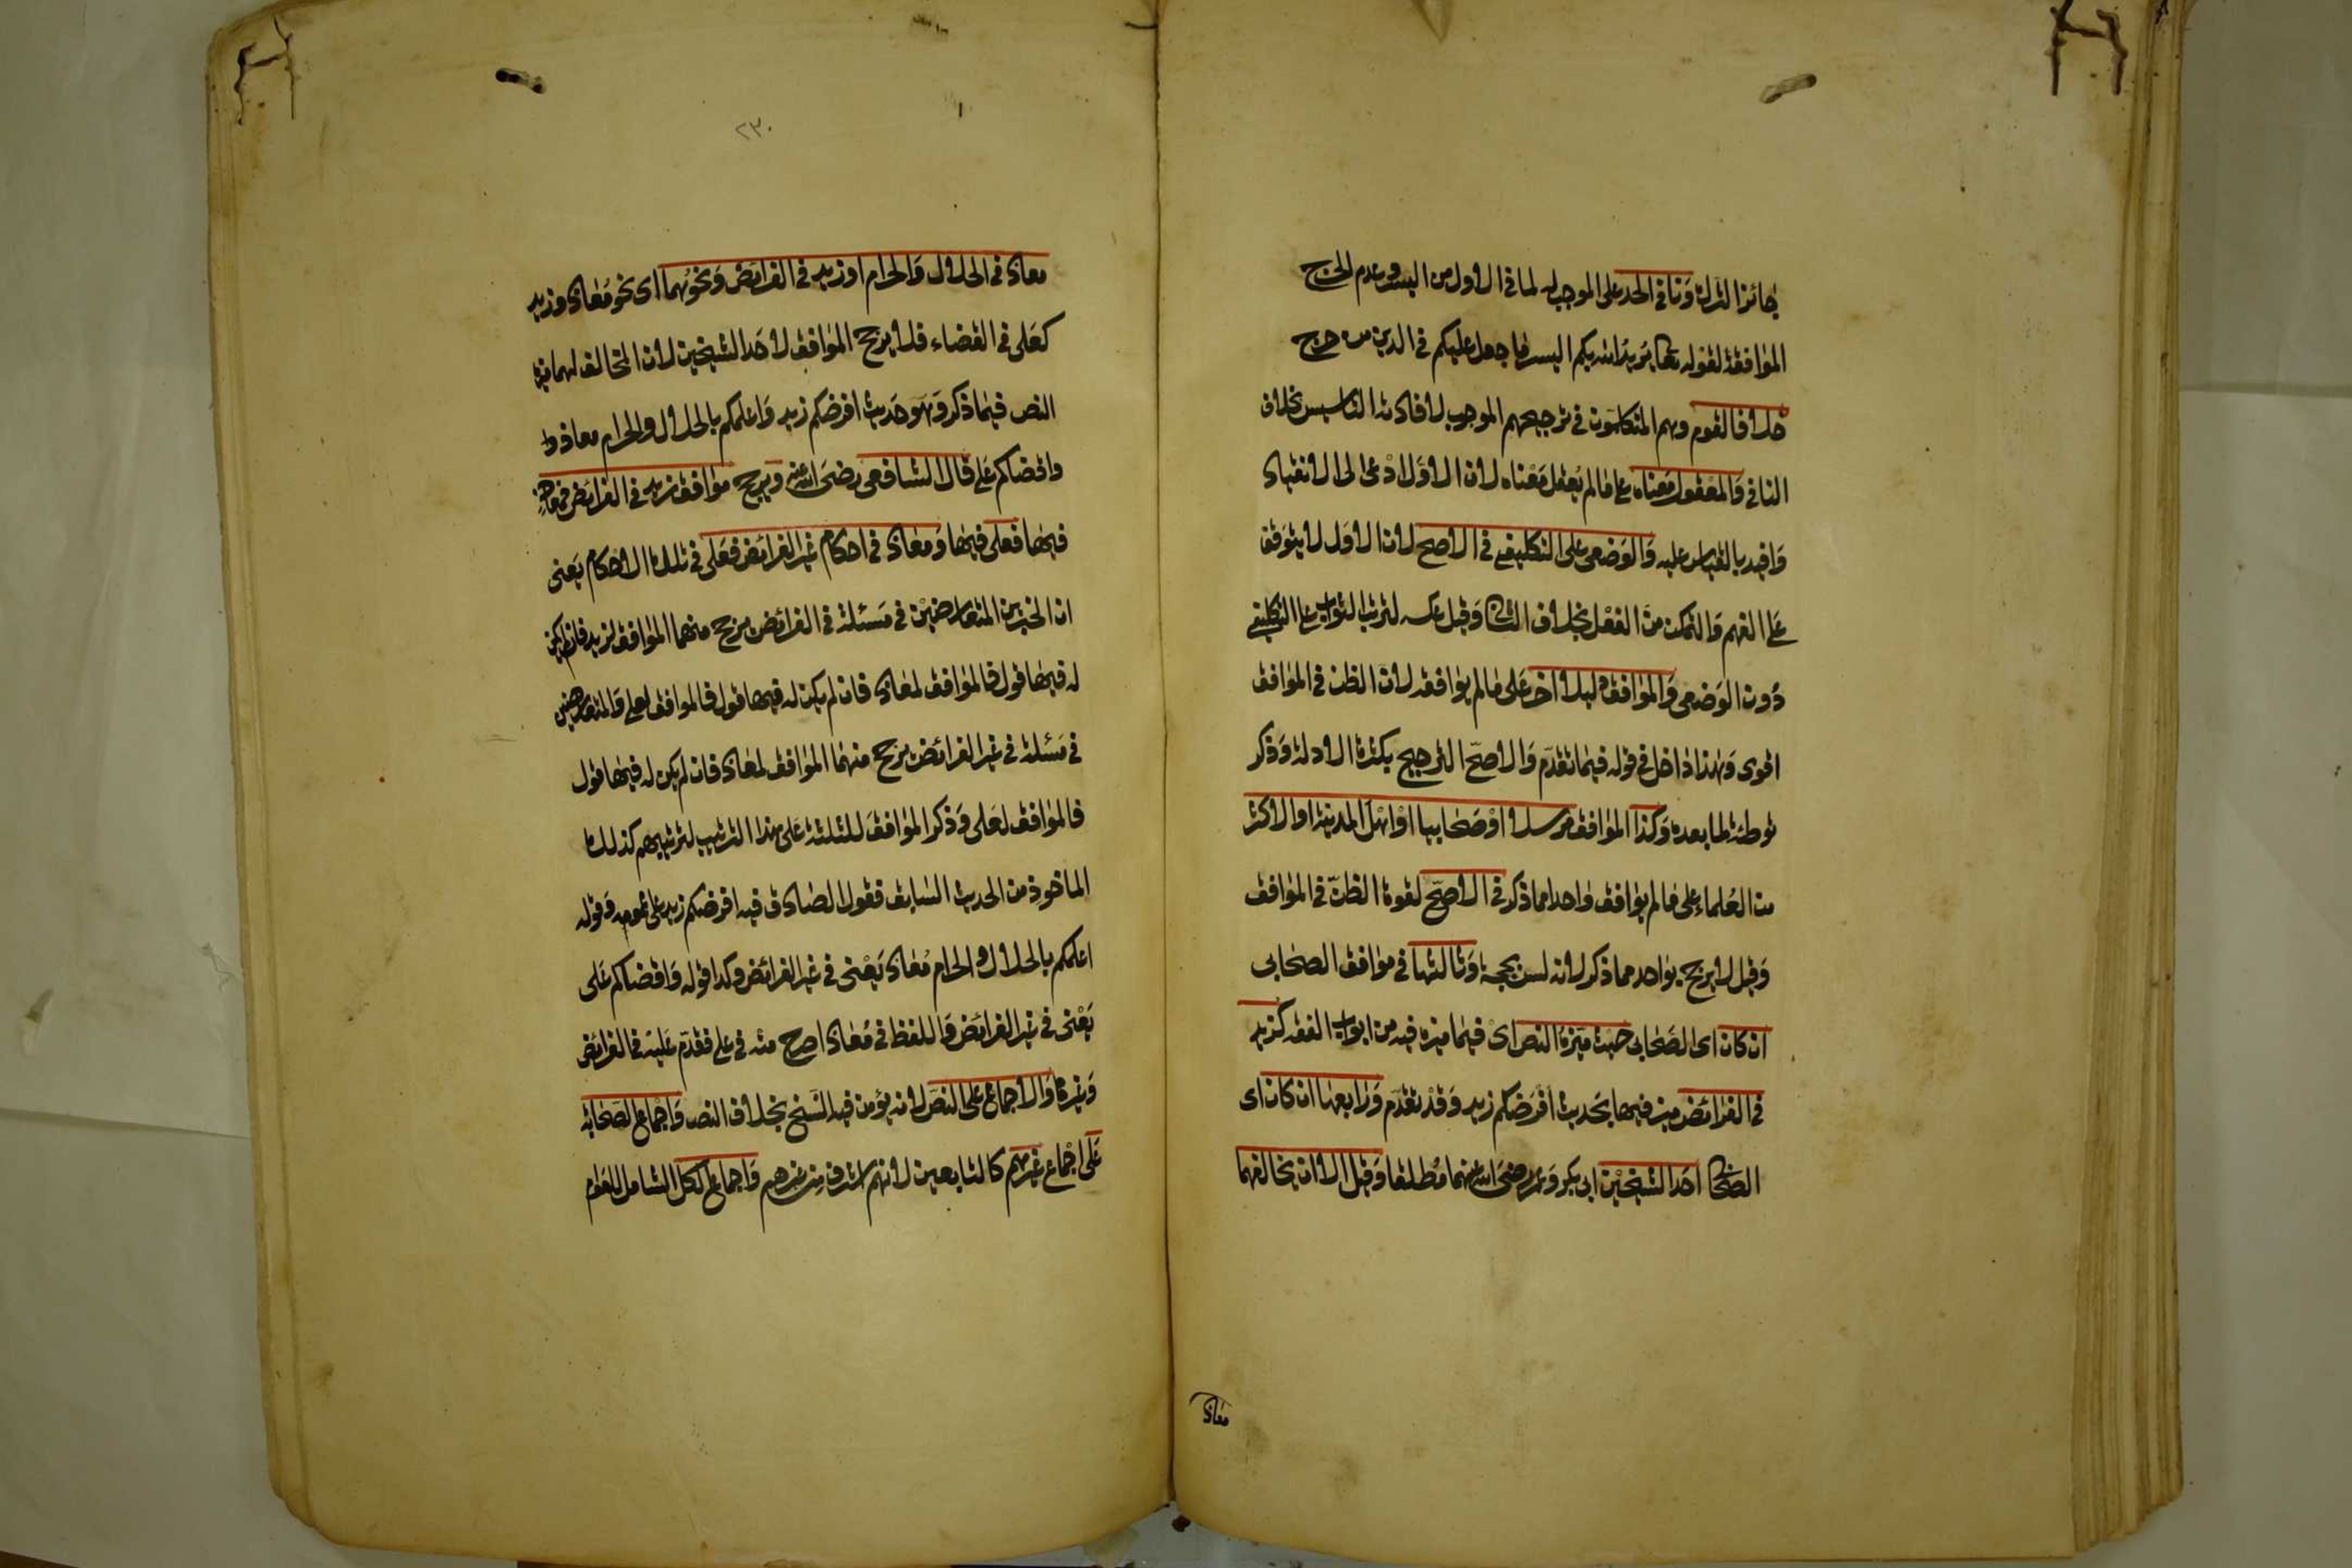 جائز الترك ونافي الحد على الموجب له لما في الاول من اليسر وعدم الحرج
الموافقة لقوله تعا يريد الله بكم اليسر ما جعل عليكم في الدين من حرج
خلافا لقوم وهم المتكلمون في ترجيحهم الموجب لافادته التاسيس بخلاف
النافي والمعقول معناه على ما لم يعقل معناه لان الاول ادعى الى الانقياد
وافيد بالقياس عليه والوضعي على التكليفي في الاصح لان الاول لا يتوقف
على الفهم والتمكن من الفعل بخلاف الثاني وقيل عكسه لترتب الثواب على التكليفي
دون الوضعي والموافق دليلا اخر على ما لم يوافقه لان الظن في الموافق
اقوى وهذا داخل في قوله فيما تقدم والاصح الترجيح بكثرة الادلة وذكر
توطئة لما بعده وكذا الموافق مرسلا او صحابيا او اهل المدينة او الاكثر
من العلماء على ما لم يوافق واحدا مما ذكر في الاصح لقوة الظن في الموافق
وقيل لا يرجح بواحد مما ذكر لانه ليس بحجة وثالثها في موافق الصحابي
ان كان اى الصحابي حيث ميزه النص اى فيما ميزه فيه من ابواب الفقه كزيد
في الفرائض ميز فيها بحديث افرضكم زيد وقد تقدم ورابعها ان كان اى
الصحابي احد الشيخين ابى بكر وعمر رضى الله عنهما مطلقا وقيل الا ان يخالفهما
معاذ
٢٣٠
معاذ في الحلال والحرام او زيد في الفرائض ونحوهما اى نحو معاذ وزيد
كعلى في القضاء فلا يرجح الموافق لاحد الشيخين لان المخالف لهما ميزه
النص فيما ذكر وهو حديث افرضكم زيد واعلمكم بالحلال والحرام معاذ
واقضاكم على قال الشافعى رضى الله عنه ويرجح موافق زيد في الفرائض فمعاذ
فيها فعلى فيها ومعاذ في احكام غير الفرائض فعلى في تلك الاحكام يعنى
ان الخبرين المتعارضين في مسئلة في الفرائض يرجح منهما الموافق لزيد فان لم يكن
له فيها قول فالموافق لمعاذ فان لم يكن له فيها قول فالموافق لعلى والمتعارضين
في مسئلة في غير الفرائض يرجح منهما الموافق لمعاذ فان لم يكن له فيها قول
فالموافق لعلى وذكر الموافق للثلثة على هذا الترتيب لترتيبهم كذلك
الماخوذ من الحديث السابق فقول الصادق فيه افرضكم زيد على عمومه وقوله
اعلمكم بالحلال والحرام معاذ يعنى في غير الفرائض وكذا قوله واقضاكم على
يعنى في غير الفرائض واللفظ في معاذ اصرح منه في على فقدم عليه في الفرائض
وغيرها والاجماع على النص لانه يؤمن فيه النسخ بخلاف النص واجماع الصحابة
على اجماع غيرهم كالتابعين لانهم اشرف من غيرهم واجماع الكل الشامل للعوام